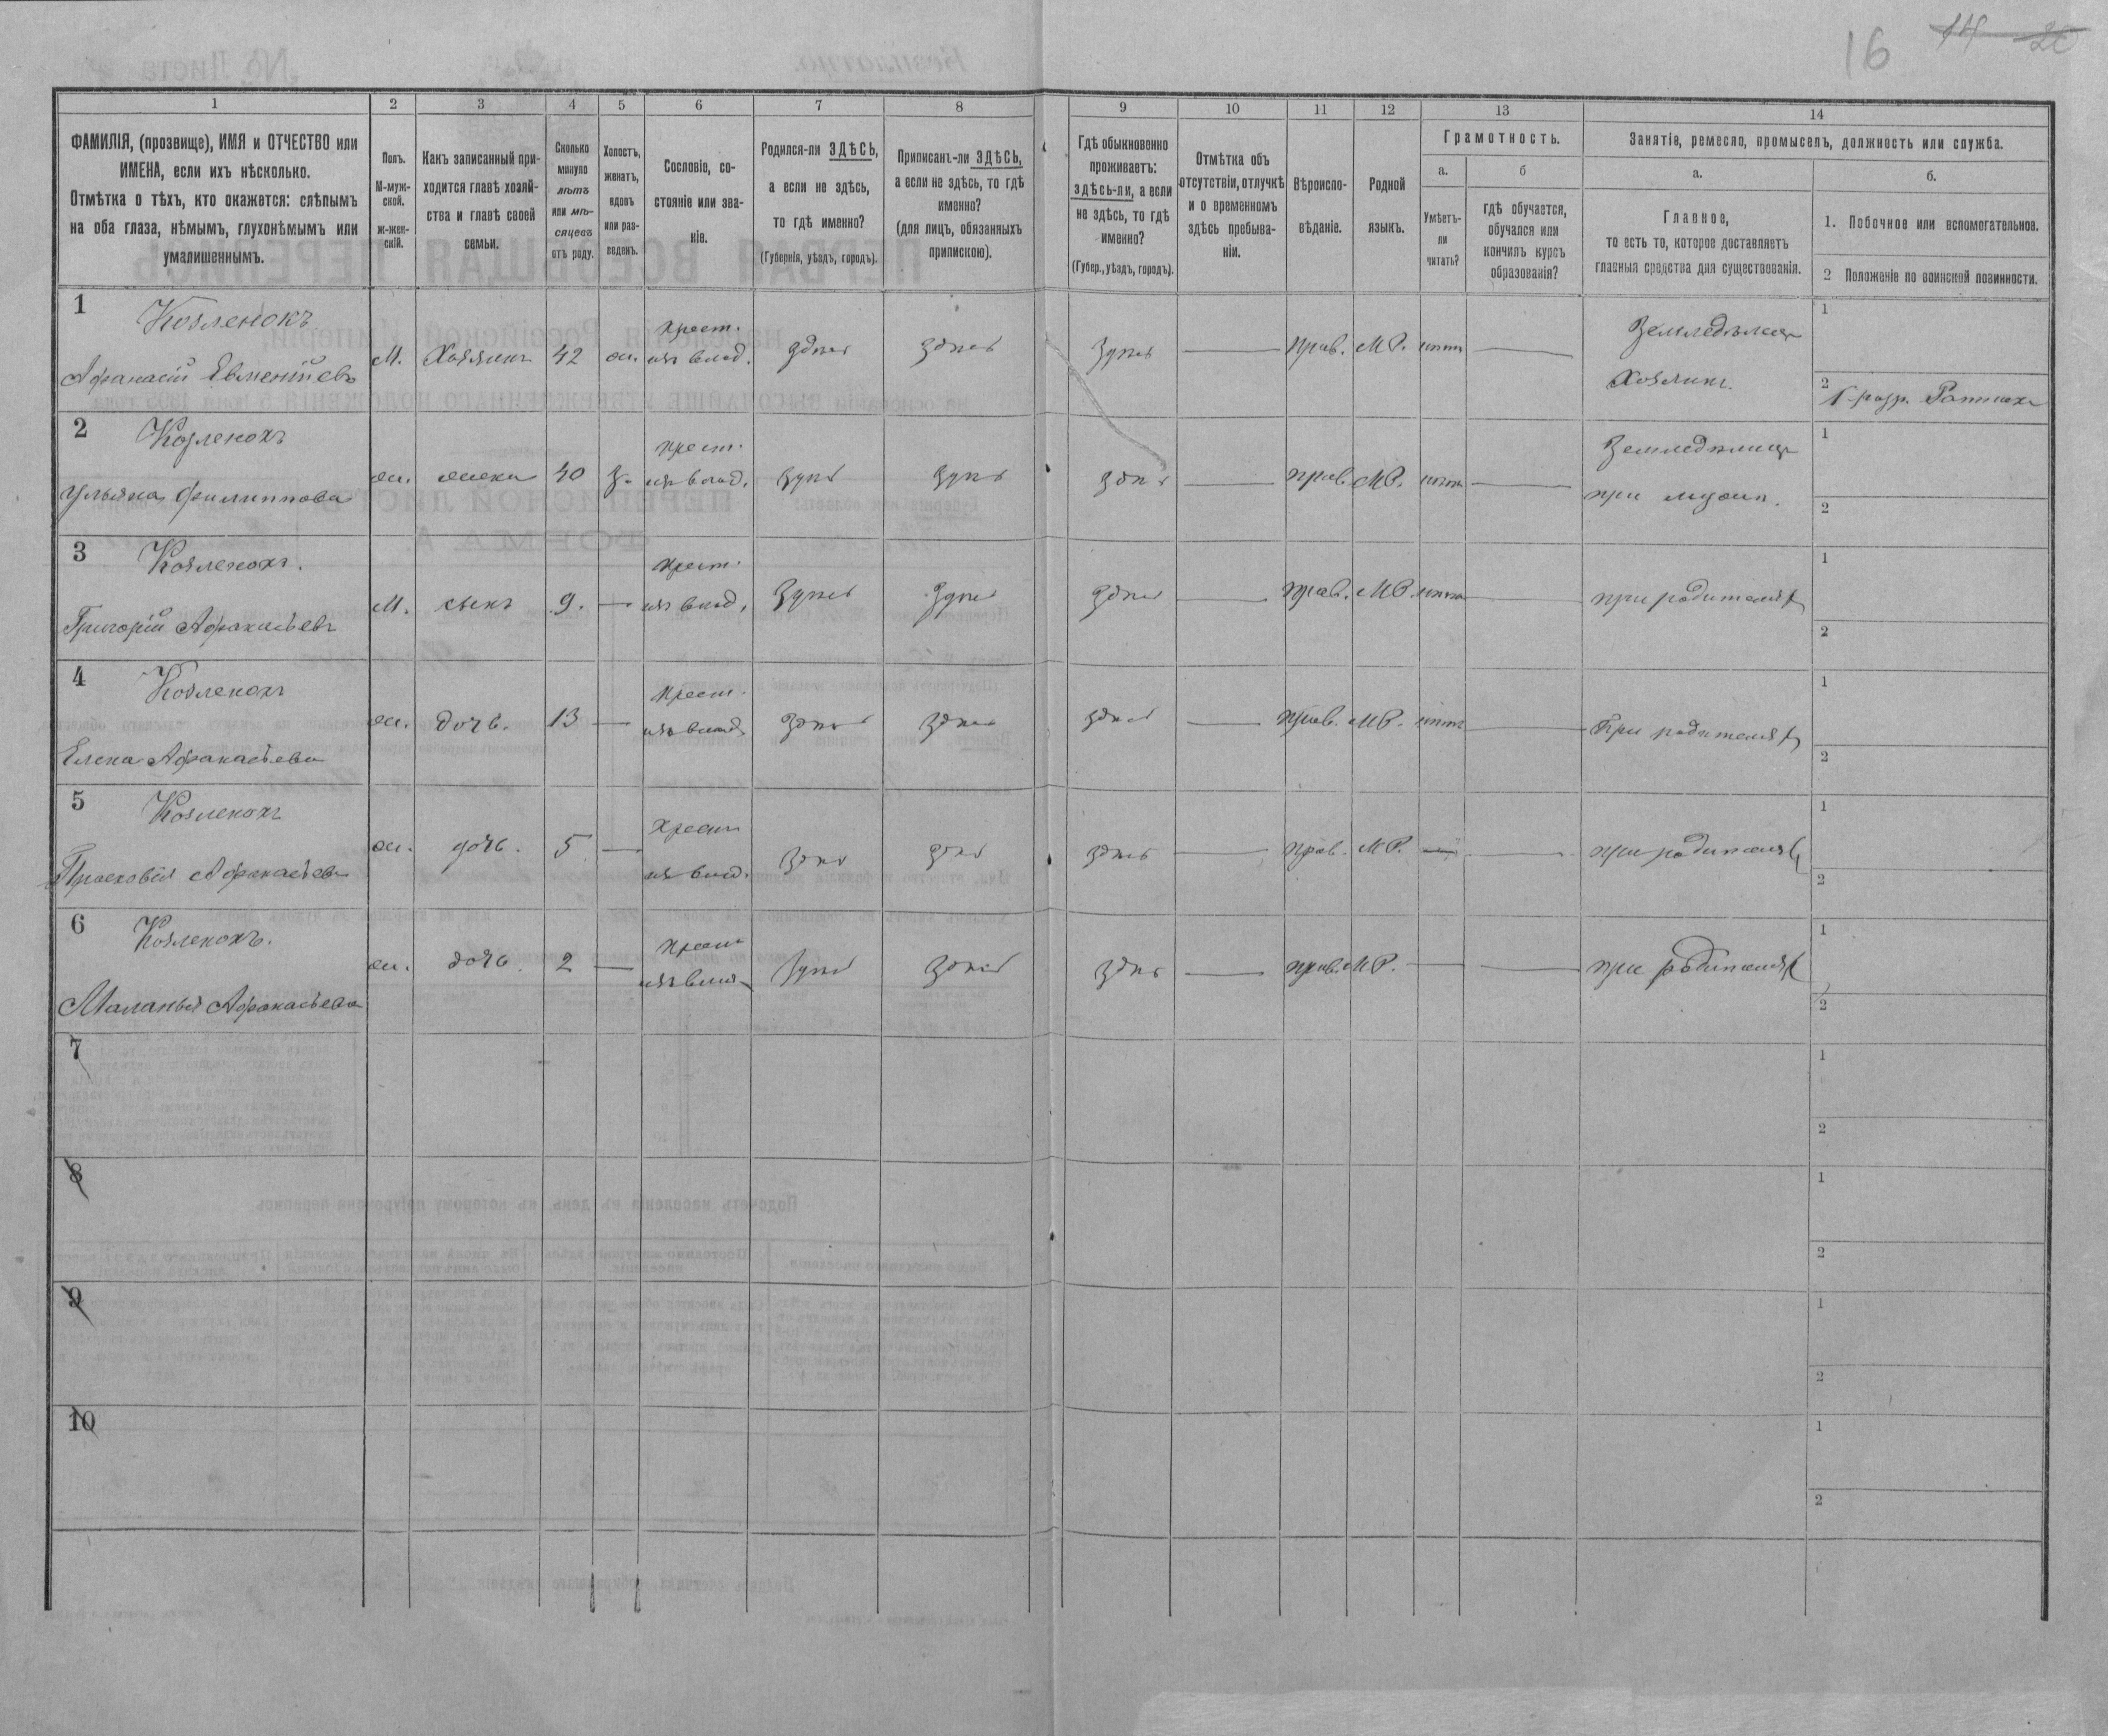 16 14 20
1 2 3 4 5 6 7 8 9 10 11 12 13 14
ФАМИЛІЯ, (прозвище), ИМЯ и ОТЧЕСТВО или
ИМЕНА, если ихъ нѣсколько.
Отмѣтка о тѣхъ, кто окажется: слѣпымъ
на оба глаза, нѣмымъ, глухонѣмымъ или
умалишеннымъ.
Полъ.
М-муж-
ской.
Ж-жен-
скій.
Какъ записанный при-
ходится главѣ хозяй-
ства и главѣ своей
семьи.
Сколько
минуло
лѣтъ
или мѣ-
сяцевъ
отъ роду.
Холостъ,
женатъ,
вдовъ
или раз-
веденъ.
Сословіе, со-
стояніе или зва-
ніе.
Родился-ли ЗДѢСЬ,
а если не здѣсь,
то гдѣ именно?
(Губернія, уѣздъ, городъ).
Приписанъ-ли ЗДѢСЬ,
а если не здѣсь, то гдѣ
именно?
(для лицъ, обязанныхъ
припискою).
Гдѣ обыкновенно
проживаетъ:
здѣсь-ли, а если
не здѣсь, то гдѣ
именно?
(Губер., уѣздъ, городъ).
Отмѣтка объ
отсутствіи, отлучкѣ
и о временномъ
здѣсь пребыва-
ніи.
Вѣроиспо-
вѣданіе.
Родной
языкъ.
Грамотность.
а.
Умѣетъ-
ли
читать?
б
гдѣ обучается,
обучался или
кончилъ курсъ
образованія?
Занятіе, ремесло, промыселъ, должность или служба.
а.
Главное,
то есть то, которое доставляетъ
главныя средства для существованія.
б.
1. Побочное или вспомогательное.
2 Положеніе по воинской повинности.
1 Козленокъ
Афанасій Евментіевъ
М. Хозяинъ 42 ж. крест. изъ влад. здѣсь здѣсь здѣсь — прав. М.Р. нѣтъ —
Земледѣлецъ
Хозяинъ.
1
2 1 разр. Ратникъ
2 Козленокъ
Ульяна Филиппова
ж. жена 40 з. крест. изъ влад. здѣсь здѣсь здѣсь — прав. М.Р. нѣтъ —
Земледѣлица
при мужѣ.
1
2
3 Козленокъ.
Григорій Афанасьевъ
М. сынъ 9. — крест. изъ влад. здѣсь здѣсь здѣсь — прав. М.Р. нѣтъ — при родителяхъ
1
2
4 Козленокъ
Елена Афанасьева
ж. дочь. 13 — крест. изъ влад. здѣсь здѣсь здѣсь — прав. М.Р. нѣтъ — При родителяхъ
1
2
5 Козленокъ
Прасковія Афанасьева
ж. дочь. 5 — крест. изъ влад. здѣсь здѣсь здѣсь — прав. М.Р. — — при родителяхъ
1
2
6 Козленокъ.
Маланья Афанасьева
ж. дочь. 2 — крест. изъ влад. здѣсь здѣсь здѣсь — прав. М.Р. — — при родителяхъ
1
2
7
1
2
8
1
2
9
1
2
10
1
2